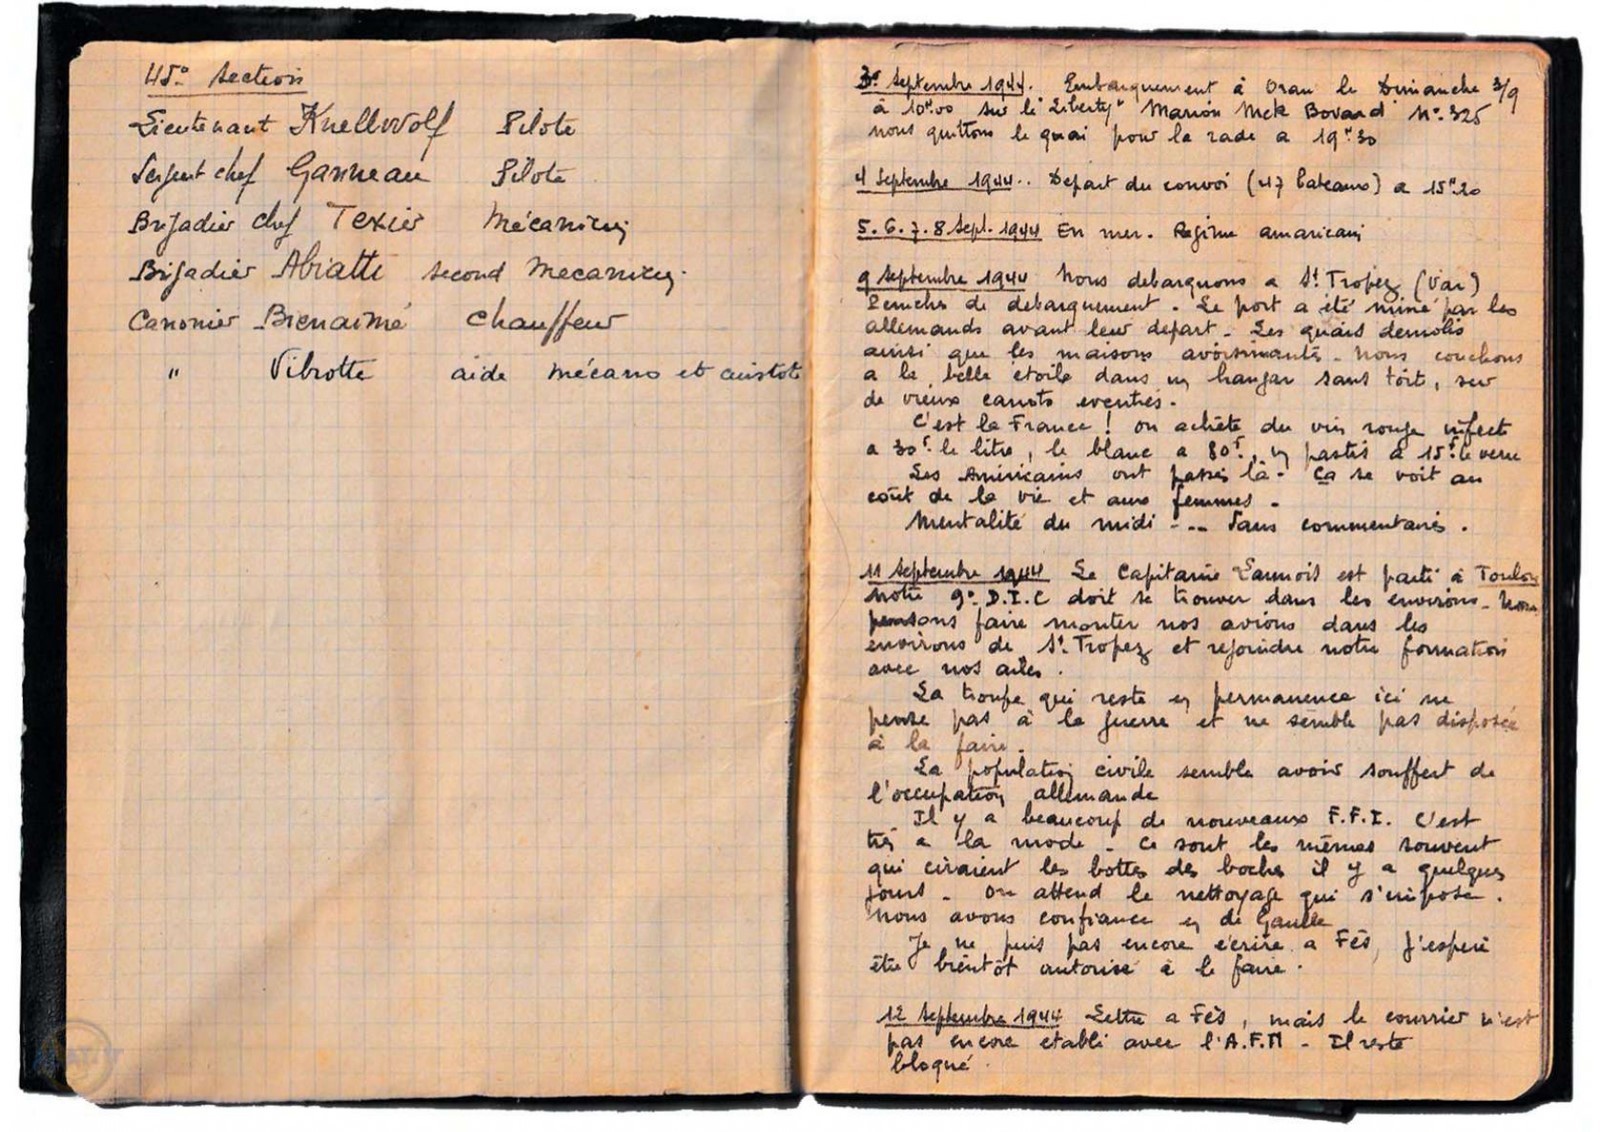 45º Section
Lieutenant Knellwolf Pilote
Sergent chef Ganneau Pilote
Brigadier chef Texier Mécanicien
Brigadier Abiatte second Mecanicien.
Canonier Bienaimé chauffeur
" Vibrotte aide mécano et cuistot
3e Septembre 1944. Embarquement à Oran le Dimanche 3/9
à 10H00 sur le "Liberty" Marion Mck Bovard Nº 325
nous quittons le quai pour la rade a 19H30
4 Septembre 1944.. Depart du convoi (47 bateaux) a 15H20
5.6.7.8 Sept. 1944 En mer. Regime amaricain
9 Septembre 1944 Nous debarquons a St Tropez (Var)
Peniches de debarquement. Le port a été miné par les
allemands avant leur depart. Les quais demolis
ainsi que les maisons avoisinantes. Nous couchons
a la belle étoile dans un hangar sans toit, sur
de vieux canots eventrés.
C'est la France! on achète du vin rouge infect
a 30f. le litre, le blanc a 80f., un pastis à 15f. le verre
Les Américains ont passés là. Ça se voit au
coût de la vie et aux femmes.
Mentalité du midi --.. Sans commentaires.
11 Septembre 1944 Le Capitaine Launois est parti à Toulon
Notre 9º D.I.C doit se trouver dans les environs. Nous
pensons faire monter nos avions dans les
environs de St. Tropez et rejoindre notre formation
avec nos ailes.
La troupe qui reste en permanence ici ne
pense pas à la guerre et ne semble pas disposée
à la faire.
La population civile semble avoir souffert de
l'occupation allemande
Il y a beaucoup de nouveaux F.F.I. C'est
très a la mode. Ce sont les mêmes souvent
qui ciraient les bottes des boches il y a quelques
jours. On attend le nettoyage qui s'impose.
Nous avons confiance en de Gaulle
Je ne puis pas encore écrire a Fès, J'espère
être bientôt autorisé à le faire.
12 Septembre 1944 Lettre a Fès, mais le courrier n'est
pas encore etabli avec l'A.F.N - Il reste
bloqué